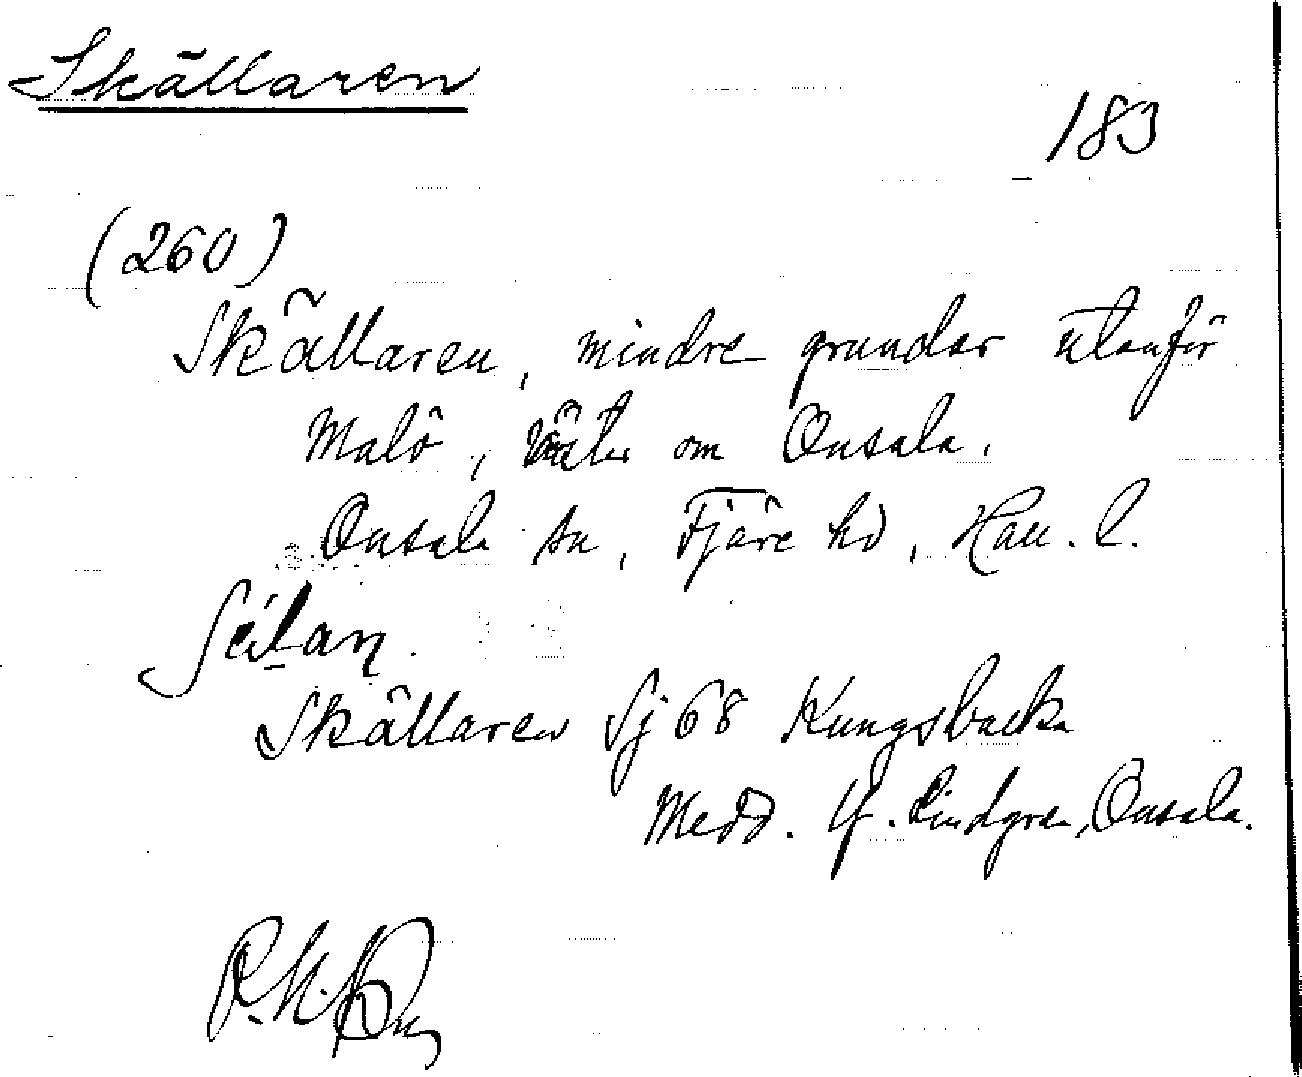 Skällaren
183
(260)
Skällaren, mindre grunder utanför
Malö, väster om Onsala.
Onsala sn, Fjäre hd, Hall. l.
Skällaren Sj 68 Kungsbacka
Medd. Lindgren, Onsala.